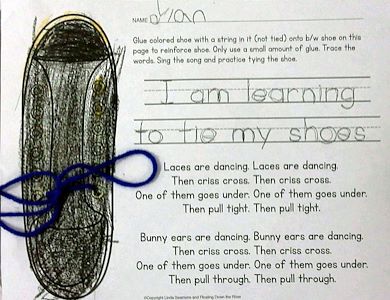 NAME Dian
Glue colored shoe with a string in it (not tied) onto b/w shoe on this
page to reinforce shoe. Only use a small amount of glue. Trace the
words. Sing the song and practice tying the shoe.
I am learning
to tie my shoes
Laces are dancing. Laces are dancing.
Then criss cross. Then criss cross.
One of them goes under. One of them goes under.
Then pull tight. Then pull tight.
Bunny ears are dancing. Bunny ears are dancing.
Then criss cross. Then criss cross.
One of them goes under. One of them goes under.
Then pull through. Then pull through.